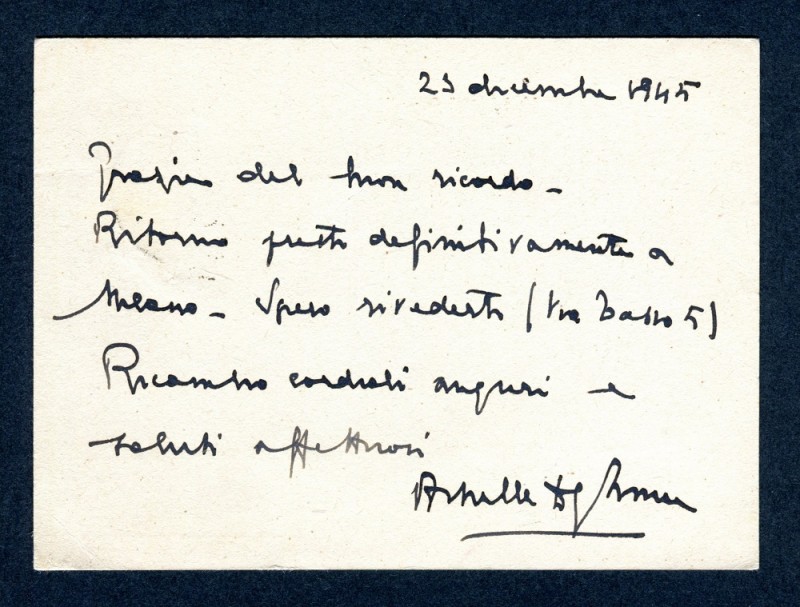 23 dicembre 1945
Grazie del buon ricordo –
Ritorno presto definitivamente a
Milano – Spero rivederti (Via Tasso 5)
Ricambio cordiali auguri e
saluti affettuosi
Achille